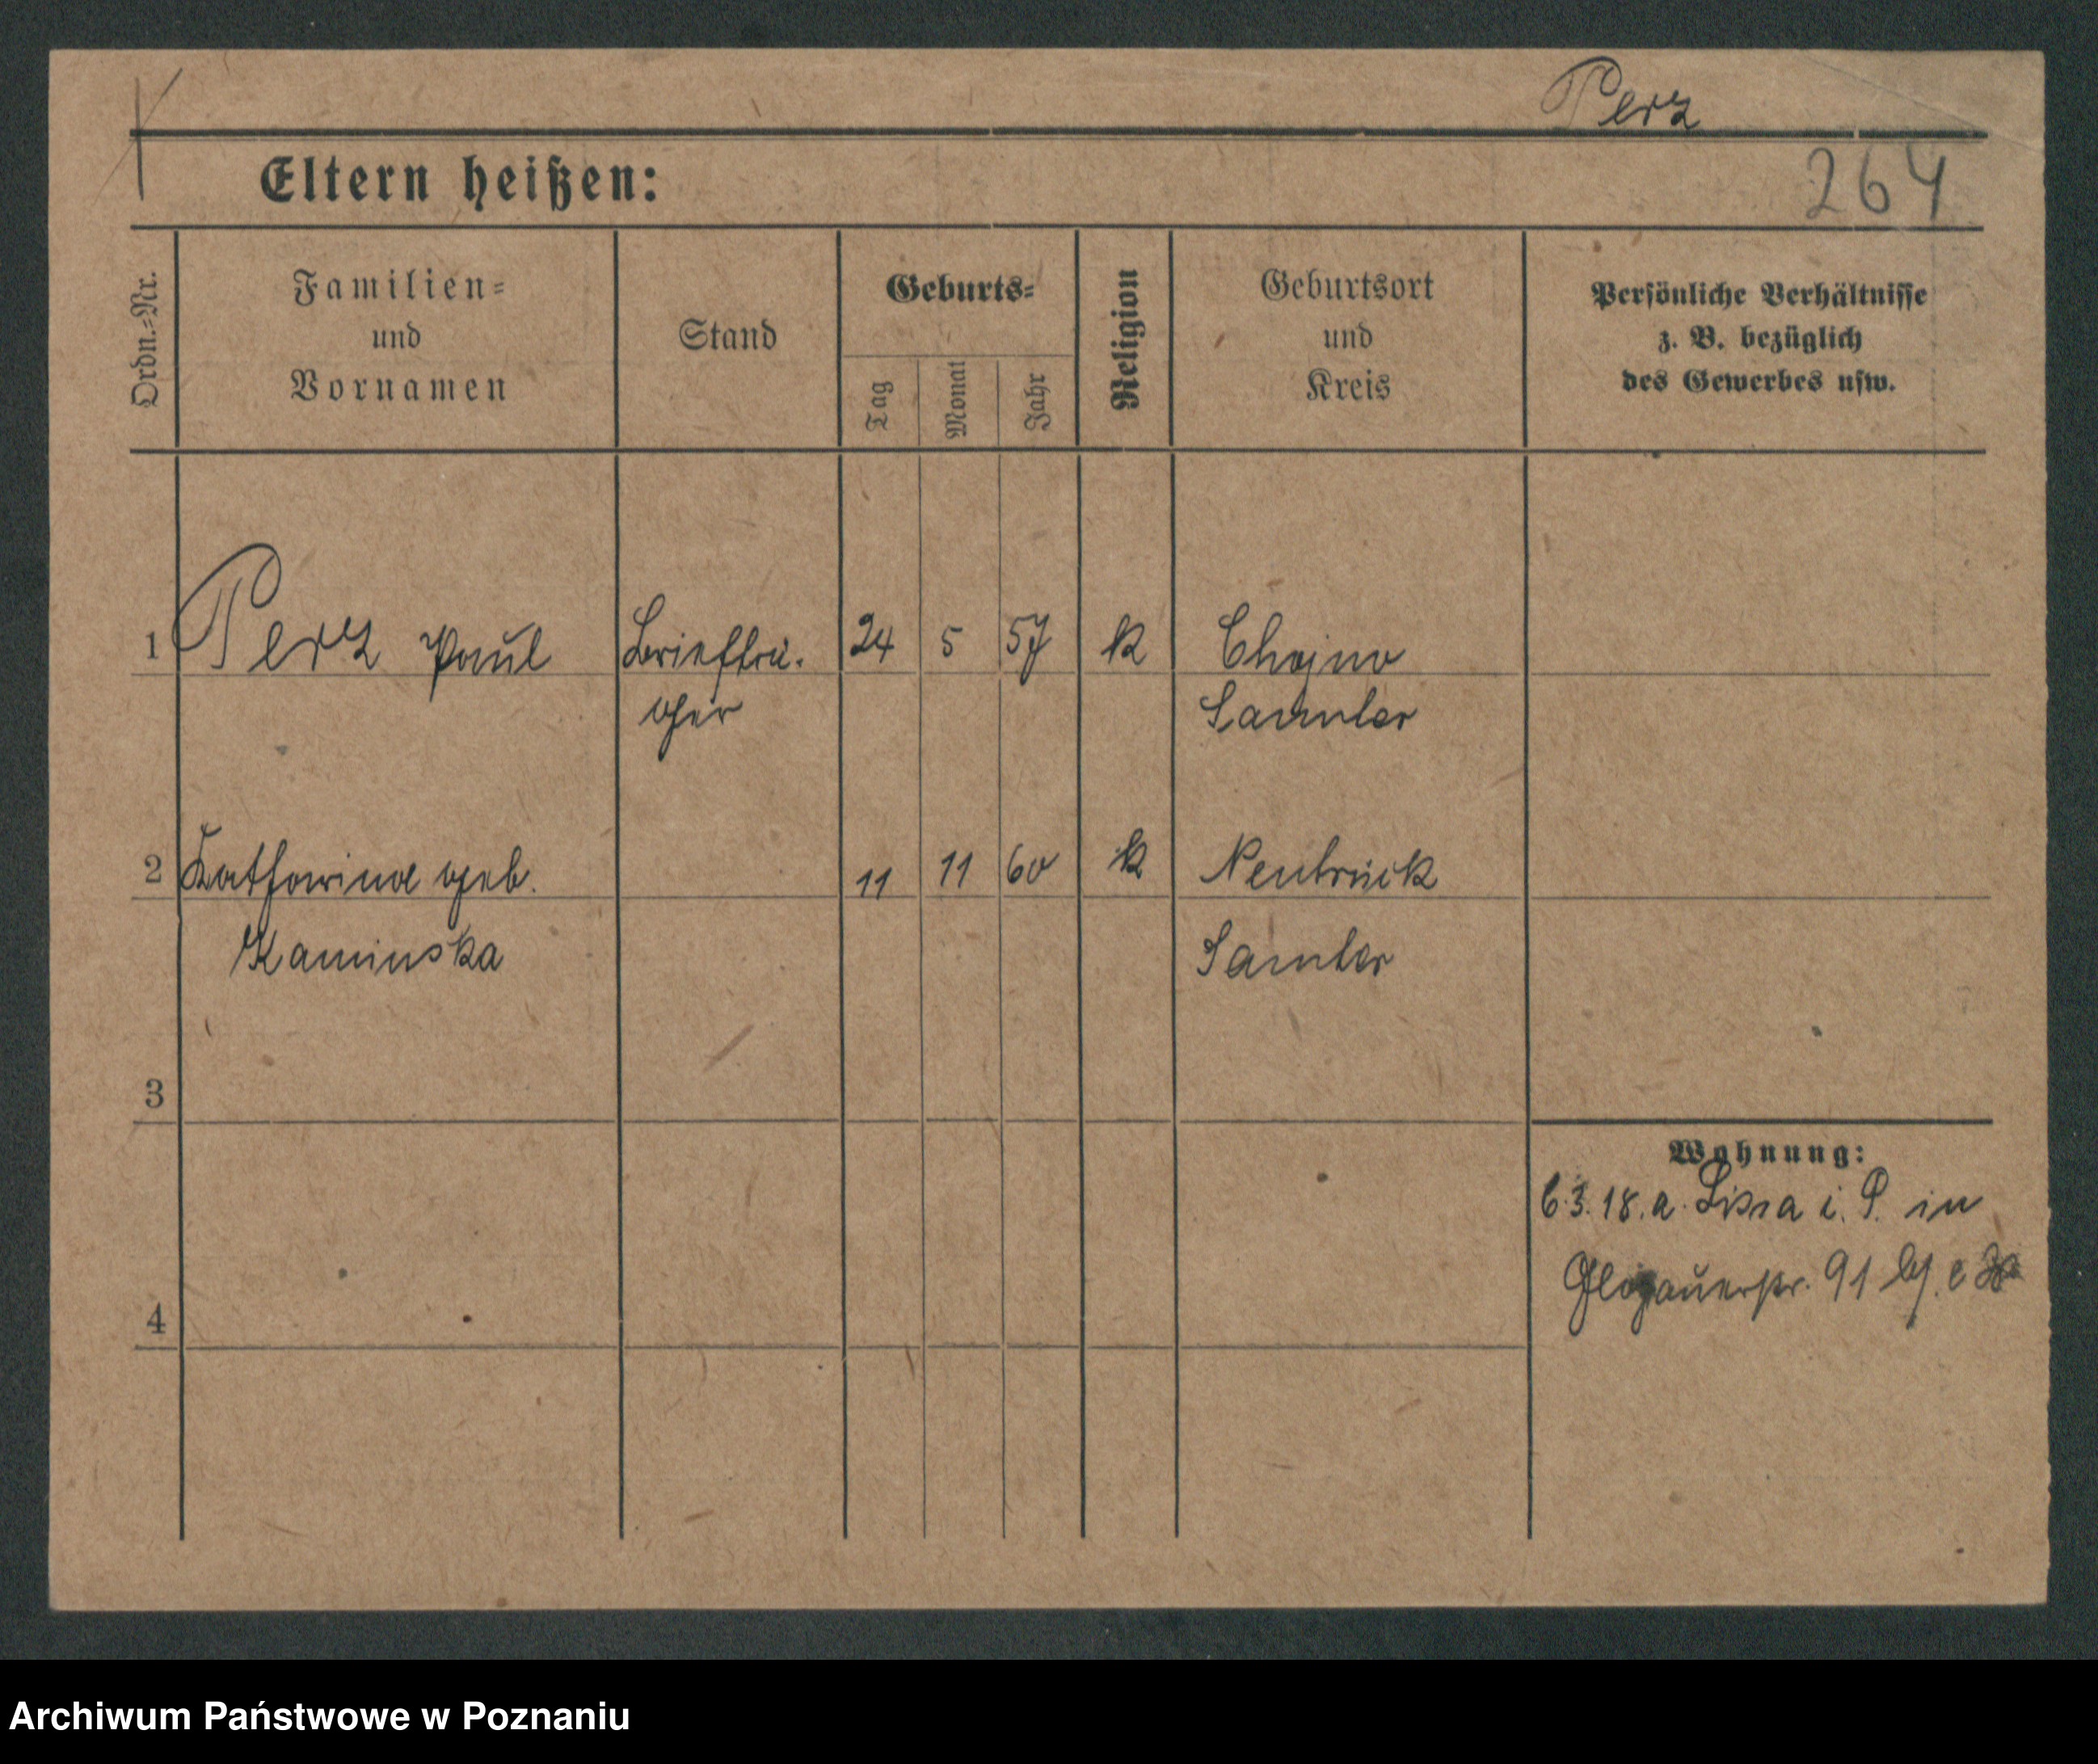 Perz
264
Eltern heißen:
Ordn.-Nr.
Familien-
und
Vornamen
Stand
Geburts-
Tag
Monat
Jahr
Religion
Geburtsort
und
Kreis
Persönliche Verhältnisse
z. B. bezüglich
des Gewerbes usw.
1 Perz Paul Briefträ- 24 5 57 k Chojno
ger Samter
2 Katharina geb. 11 11 60 k Neubrück
Kaminska Samter
3
Wohnung:
6.3.18. a. Lissa i. P. in
Glogauerstr. 91
4
Archiwum Państwowe w Poznaniu